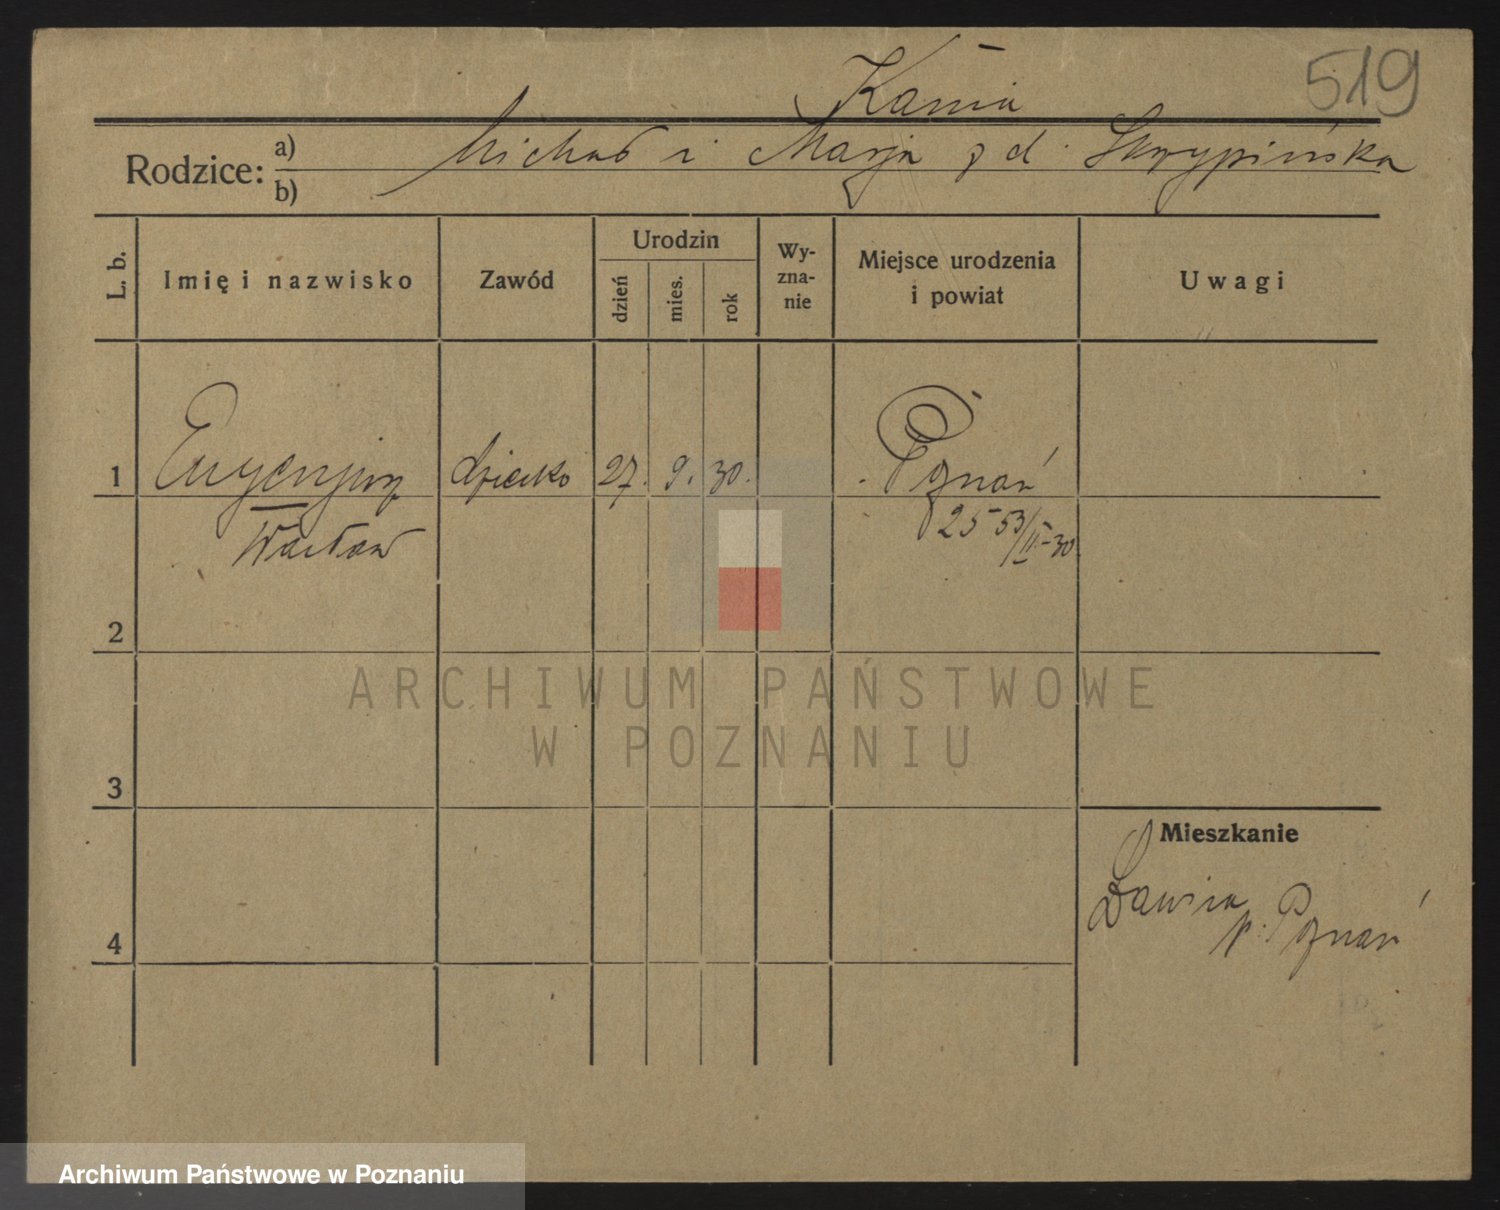 519
Kania
Rodzice: a) Michał i Marja z d. Skrzypińska
b)
L. b.
Imię i nazwisko
Zawód
Urodzin
dzień
mies.
rok
Wy-
zna-
nie
Miejsce urodzenia
i powiat
Uwagi
1 Eugenjusz dziecko 27. 9. 30. Poznań
Wacław 2553/II-30
2
ARCHIWUM PAŃSTWOWE
W POZNANIU
3
Mieszkanie
Ławica
p. Poznań
4
Archiwum Państwowe w Poznaniu